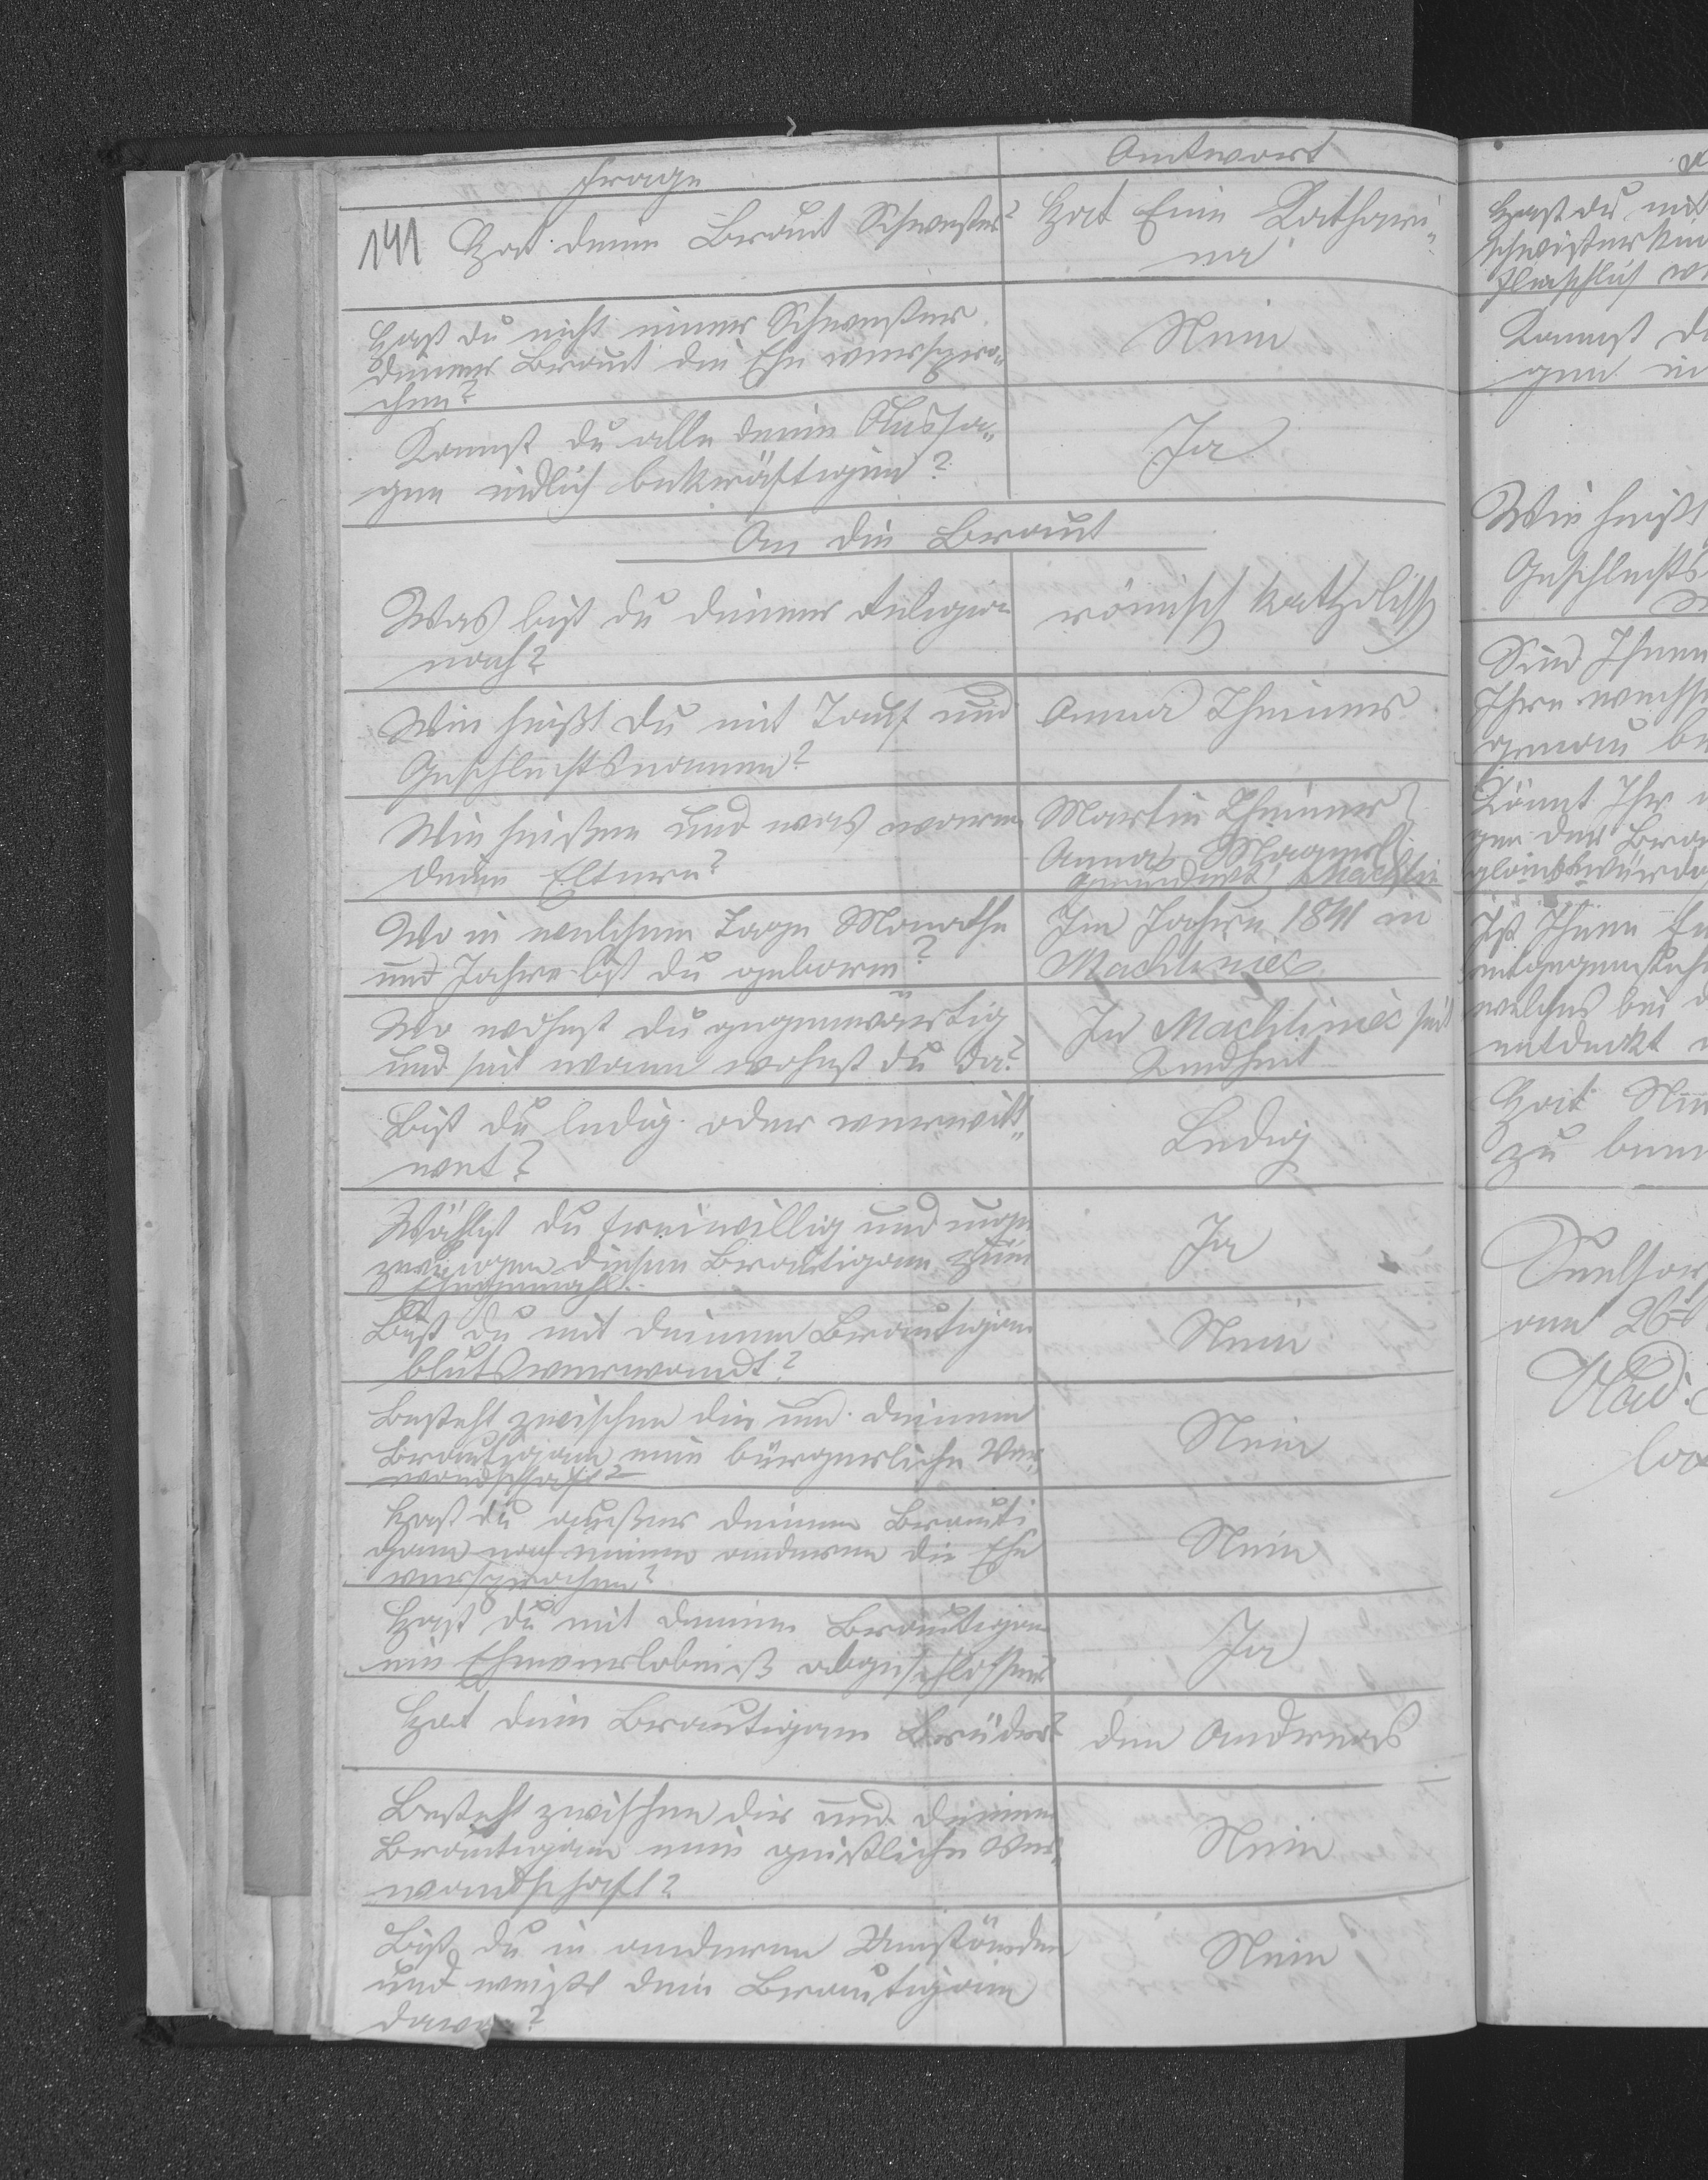 Frage
Antwort
141 Hat deine Braut Schwester?
Hat Eine Kathari-
na
Hast du nicht einer Schwester
deiner Braut die Ehe verspro-
chen?
Nein
Kannst du alle deine Aussa-
gen eidlich bekräftigen?
Ja
An die Braut
Was bist du deiner Religion
nach?
römisch katholisch
Wie heißt du mit Tauf und
Geschlechtsnamen?
Anna Theimer
Wie heißen und was waren
deine Eltern?
Martin Theimer
Anna
Machlin
Wo in welchem Tage Monathe
und Jahre bist du geboren?
Im Jahre 1841 in
Machliniec
Wo wohnst du gegenwärtig
und seit wann wohnst du da?
In Machliniec seit
Kindheit
Bist du ledig oder verwitt-
wet?
Ledig
Wählst du freiwillig und unge
zwungen diesen Bräutigam zum
Ehegemahl.
Ja
Bist du mit deinem Bräutigam
blutsverwandt?
Nein
Besteht zwischen dir und deinem
Bräutigam eine bürgerliche Ver-
wandschaft?
Nein
Hast du außer deinem Bräuti
gam noch einem anderen die Ehe
versprochen?
Nein
Hast du mit deinem Bräutigam
ein Eheverlobniß abgeschlossen
Ja
Hat dein Bräutigam Brüder?
den Andreas
Besteht zwischen dir und deinem
Bräutigam eine geistliche Ver-
wandtschaft?
Nein
Bist du in anderen Umständen
und weißt dein Bräutigam
davon?
Nein
Hast du mit
Geschwisterkin
fleischlich
Kannst du
gen
Wie heißt
Geschlechts
Sind Ihnen
Ihre
genau be
Könnt Ihr
gen der Bra
glaubwürd
Ist Ihnen
entgegensteh
welches bei
entdeckt
Hat
zu
am 26